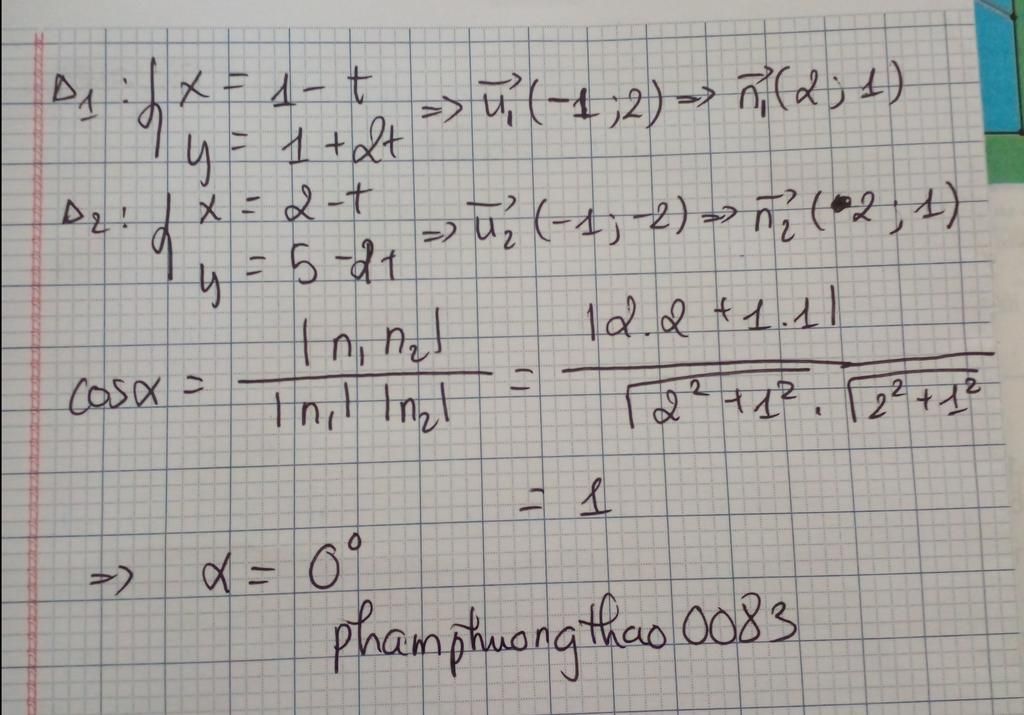 Δ1 : { x = 1 - t => u₁→ (-1 ; 2) => n₁→ (2 ; 1)
y = 1 + 2t
Δ2 : { x = 2 - t => u₂→ (-1 ; -2) => n₂→ (2 ; 1)
y = 5 - 2t
cosα = |n₁ n₂| / |n₁| |n₂| = |2.2 + 1.1| / √(2² + 1²) . √(2² + 1²)
= 1
=> α = 0°
phamphuongthao0083